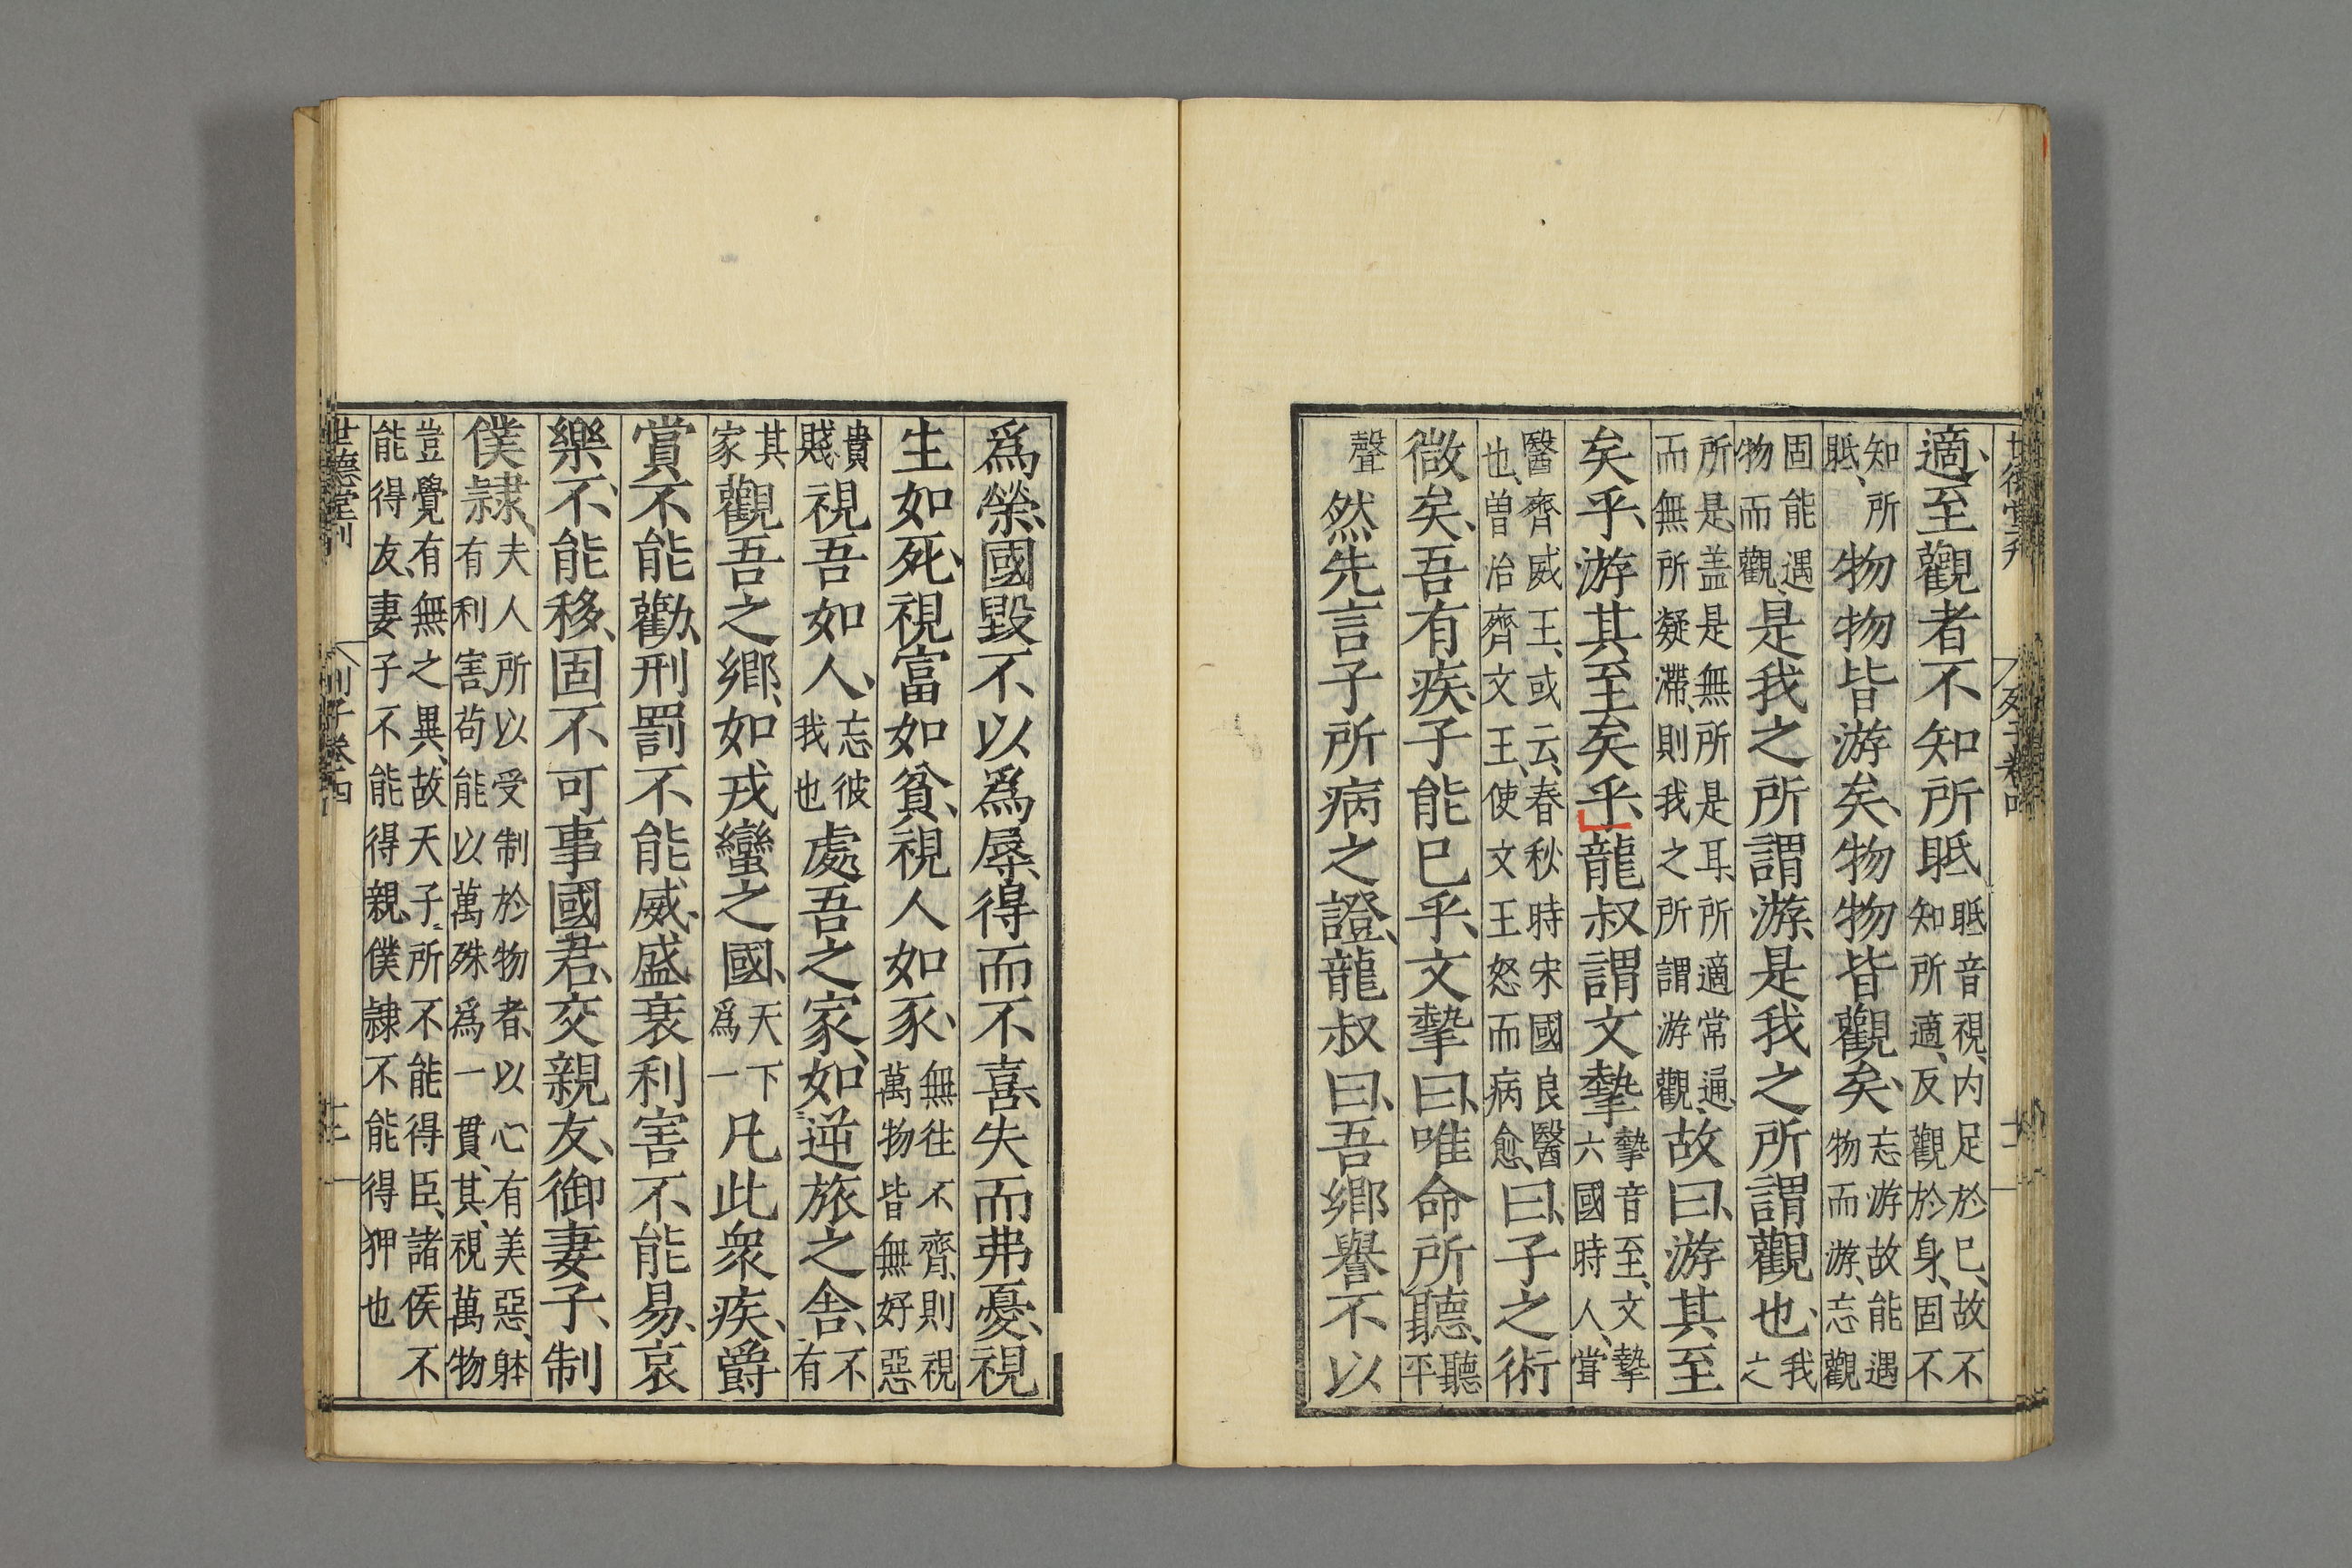 適、至觀者不知所眂眂音視、内足於已、故不知所適、反觀於身、固不
知所眂、物物皆游矣、物物皆觀矣、忘游故能遇物而游、忘觀
固能遇物而觀、是我之所謂游、是我之所謂觀也、我之
所是、盖是無所是耳、所適常通、而無所凝滯、則我之所謂游觀、故曰、游其至
矣乎、游其至矣乎、龍叔謂文摯摯音至、文摯六國時人、甞
醫齊威王、或云、春秋時宋國良醫也、曽治齊文王、使文王怒而病愈、曰、子之術
微矣、吾有疾、子能已乎、文摯曰、唯命所聽、聽平
聲然先言子所病之證、龍叔曰、吾鄉譽不以
爲榮、國毀不以爲辱、得而不喜、失而弗憂、視
生如死、視富如貧、視人如豕、無往不齊、則視萬物皆無好惡
貴賤視吾如人、忘彼我也處吾之家、如逆旅之舎、不有
其家觀吾之鄉、如戎蠻之國、天下爲一凡此衆疾、爵
賞不能勸、刑罰不能威、盛衰利害不能易、哀
樂不能移、固不可事國君、交親友、御妻子、制
僕隷、夫人所以受制於物者、以心有美惡、躰有利害、苟能以萬殊爲一貫、其視萬物
豈覺有、有無之異、故天子所不能得臣、諸侯不能得友、妻子不能得親、僕隷不能得狎也
世德堂刊
列子卷四